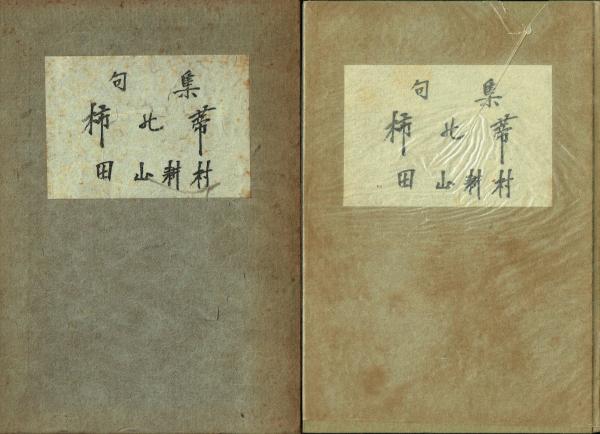 句 集
柿 北 蒂
田 山 耕 村
句 集
柿 北 蒂
田 山 耕 村